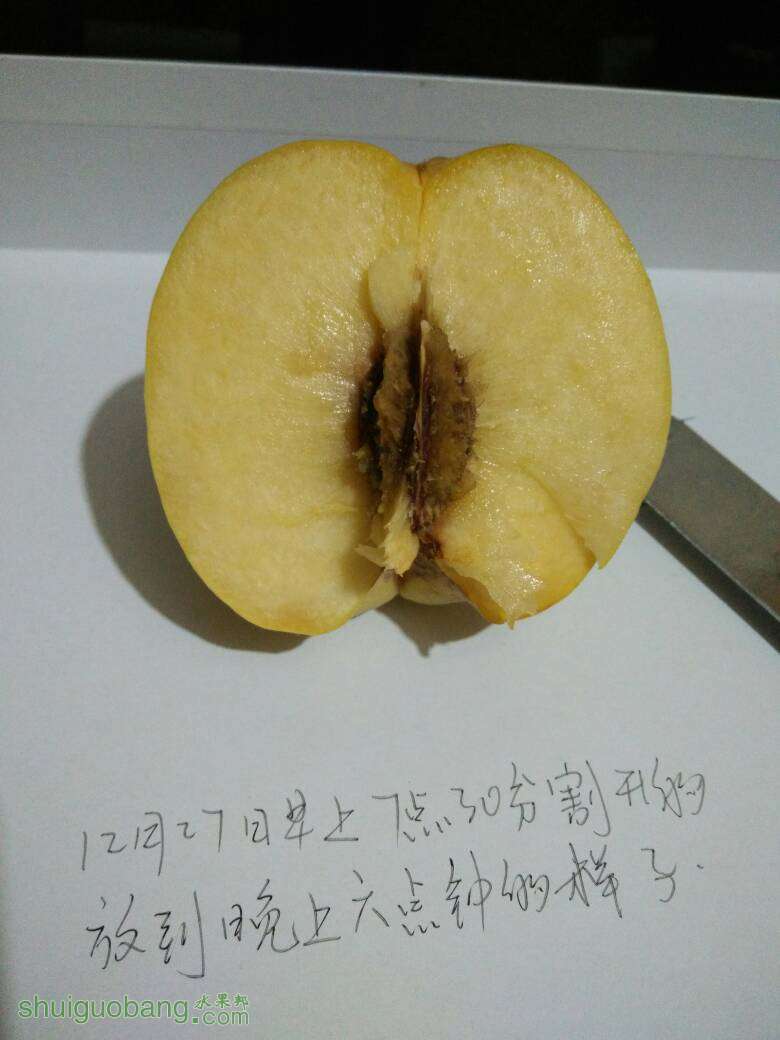 12月27日早上7点30分割开的
放到晚上六点钟的样子.
shuiguobang水果邦.com